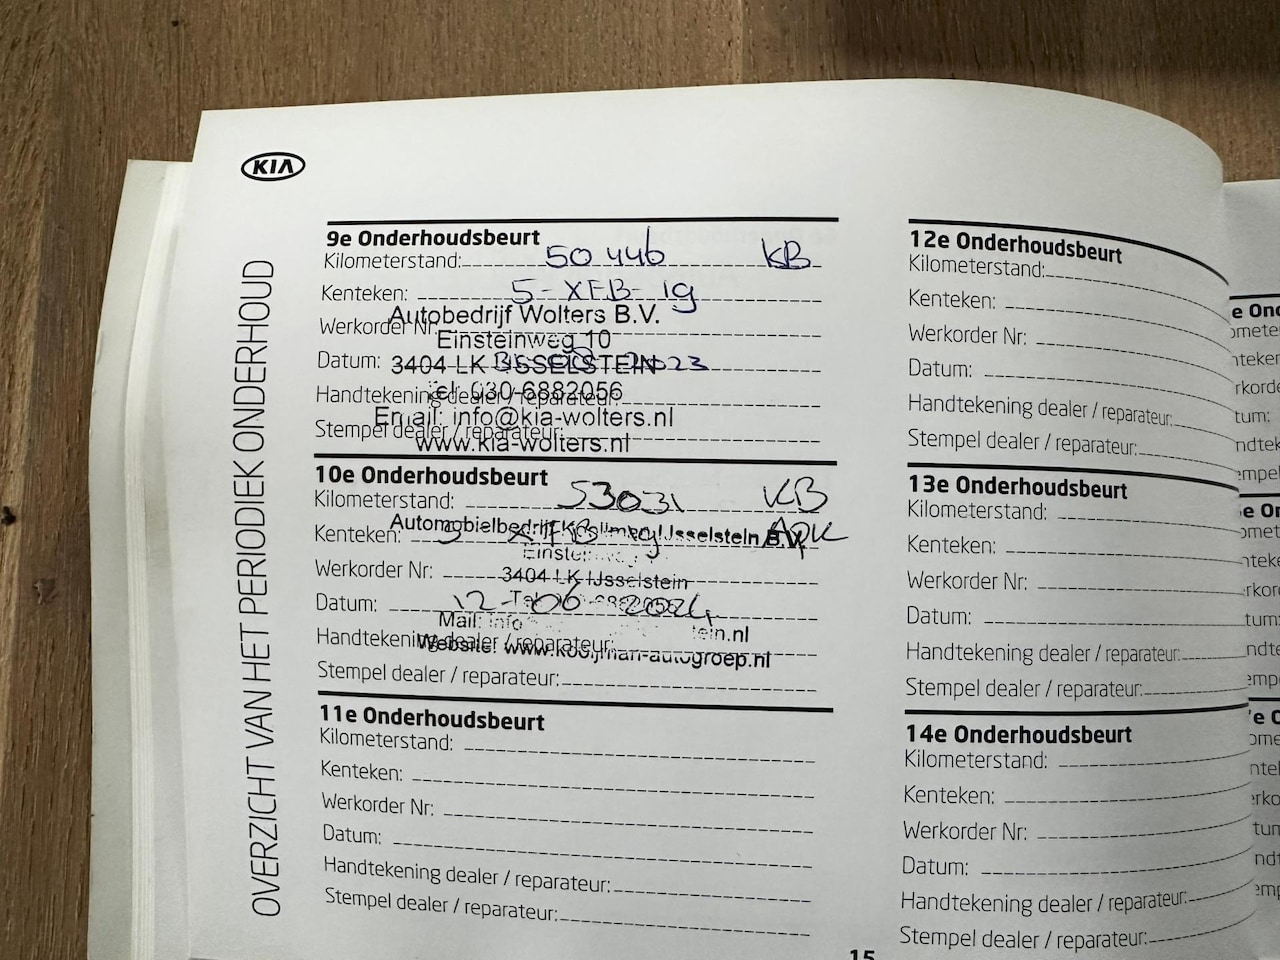 KIA
OVERZICHT VAN HET PERIODIEK ONDERHOUD
9e Onderhoudsbeurt
Kilometerstand: 50 446 KB
Kenteken: 5-XFB-19
Autobedrijf Wolters B.V.
Werkorder Nr:
Einsteinweg 10
Datum: 2023
3404 LK IJSSELSTEIN
Tel: 030-6882056
Handtekening dealer / reparateur:
Email: info@kia-wolters.nl
Stempel dealer / reparateur:
www.kia-wolters.nl
10e Onderhoudsbeurt
Kilometerstand: 53031 KB
Kenteken: 5 XFB 19 APK
IJsselstein B.V.
Werkorder Nr:
3404 LK IJsselstein
Datum: 12-06-2024
Mail: info
tein.nl
Handtekening dealer / reparateur:
Website: www.kooijman-autogroep.nl
Stempel dealer / reparateur:
11e Onderhoudsbeurt
Kilometerstand:
Kenteken:
Werkorder Nr:
Datum:
Handtekening dealer / reparateur:
Stempel dealer / reparateur:
12e Onderhoudsbeurt
Kilometerstand:
Kenteken:
Werkorder Nr:
Datum:
Handtekening dealer / reparateur:
Stempel dealer / reparateur:
13e Onderhoudsbeurt
Kilometerstand:
Kenteken:
Werkorder Nr:
Datum:
Handtekening dealer / reparateur:
Stempel dealer / reparateur:
14e Onderhoudsbeurt
Kilometerstand:
Kenteken:
Werkorder Nr:
Datum:
Handtekening dealer / reparateur:
Stempel dealer / reparateur:
15